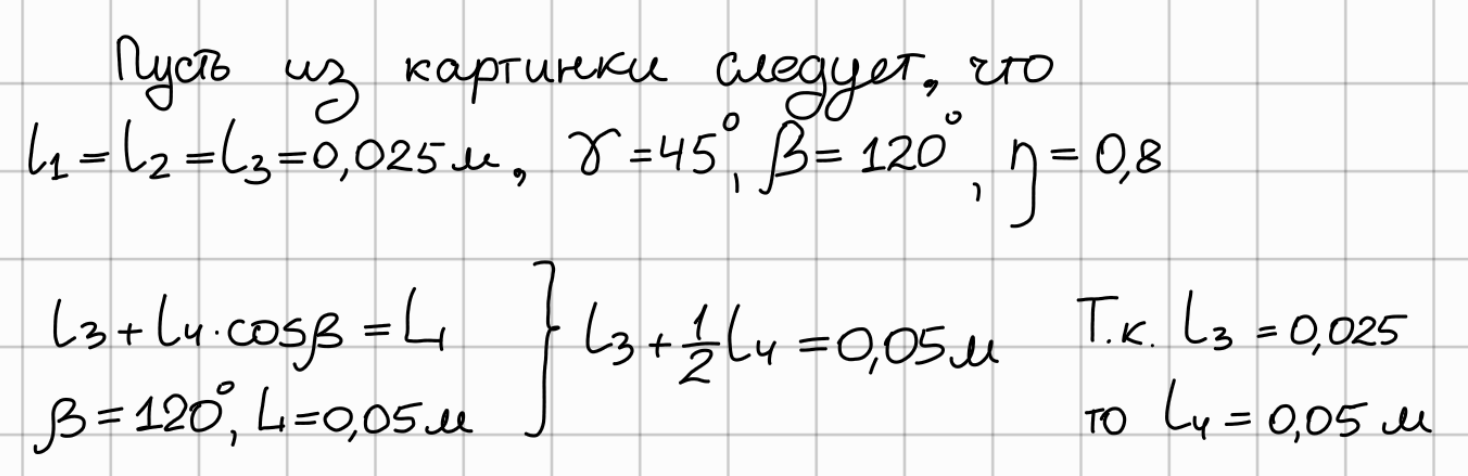 Пусть из картинки следует, что
l₁ = l₂ = l₃ = 0,025 м, γ = 45°, β = 120°, η = 0,8
l₃ + l₄ · cosβ = L
β = 120°, L = 0,05 м
} l₃ + 1/2 l₄ = 0,05 м
Т.к. l₃ = 0,025
то l₄ = 0,05 м